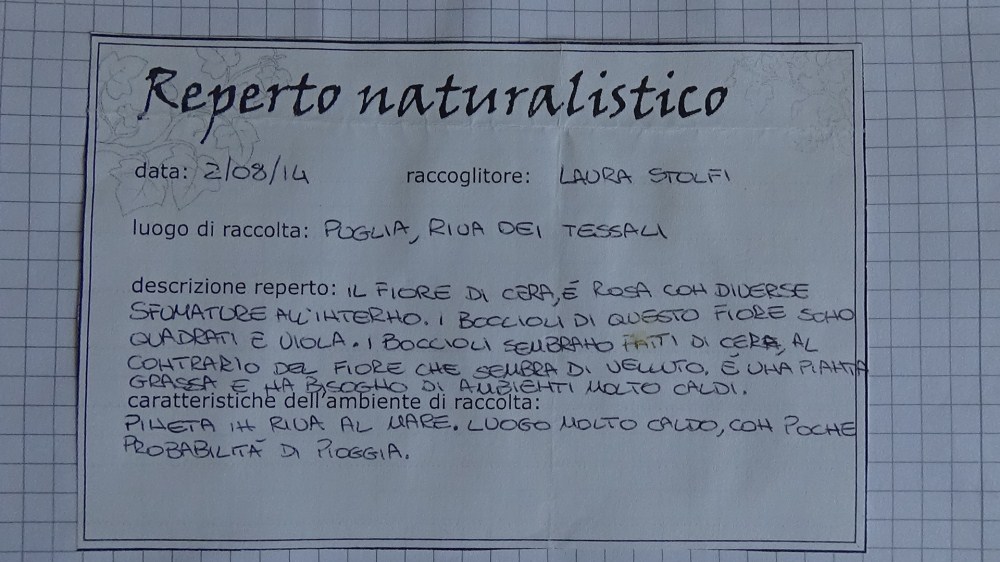 Reperto naturalistico
data: 2/08/14 raccoglitore: LAURA STOLFI
luogo di raccolta: PUGLIA, RIVA DEI TESSALI
descrizione reperto: IL FIORE DI CERA, È ROSA CON DIVERSE
SFUMATURE ALL'INTERNO. I BOCCIOLI DI QUESTO FIORE SONO
QUADRATI E VIOLA. I BOCCIOLI SEMBRANO FATTI DI CERA, AL
CONTRARIO DEL FIORE CHE SEMBRA DI VELLUTO. È UNA PIANTA
GRASSA E HA BISOGNO DI AMBIENTI MOLTO CALDI.
caratteristiche dell'ambiente di raccolta:
PINETA IN RIVA AL MARE. LUOGO MOLTO CALDO, CON POCHE
PROBABILITÀ DI PIOGGIA.